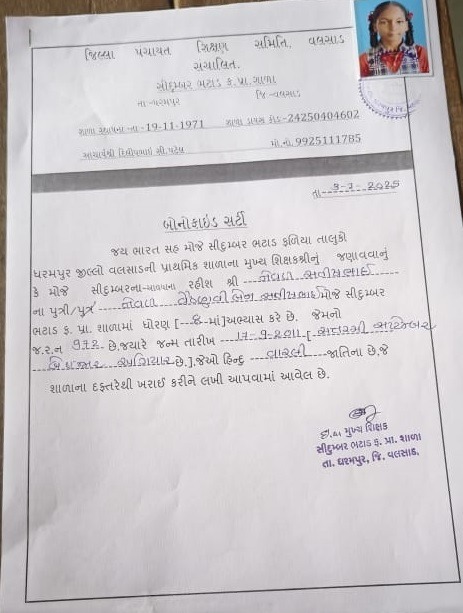 જિલ્લા પંચાયત શિક્ષણ સમિતિ, વલસાડ
સંચાલિત,
સીદુમ્બર ભટાડ ફ.પ્રા.શાળા
તા-ધરમપુર જિ-વલસાડ
શાળા સ્થાપના તા-19-11-1971 શાળા ડાયસ કોડ:-24250404602
આચાર્યશ્રી દિલીપભાઇ સી.પટેલ મો.નો. 9925111785
તા. 3-7-2025
બોનોફાઇડ સર્ટી
જય ભારત સહ મોજે સીદુમ્બર ભટાડ ફળિયા તાલુકો
ધરમપુર જીલ્લો વલસાડની પ્રાથમિક શાળાના મુખ્ય શિક્ષકશ્રીનું જણાવવાનું
કે મોજે સીદુમ્બરના રહીશ શ્રી
ના પુત્રી/પુત્ર મોજે સીદુમ્બર
ભટાડ ફ. પ્રા. શાળામાં ધોરણ [ 8 માં]અભ્યાસ કરે છે. જેમનો
જ.ર.ન 972 છે.જયારે જન્મ તારીખ 17-9-2011 [ સત્તરમી સપ્ટેમ્બર
બે હજાર અગિયાર છે.].જેઓ હિન્દુ વારલી જાતિના છે,જે
શાળાના દફતરેથી ખરાઈ કરીને લખી આપવામાં આવેલ છે.
ઈ.ચા મુખ્ય શિક્ષક
સીદુમ્બર ભટાડ ફ. પ્રા. શાળા
તા. ધરમપુર, જિ. વલસાડ.